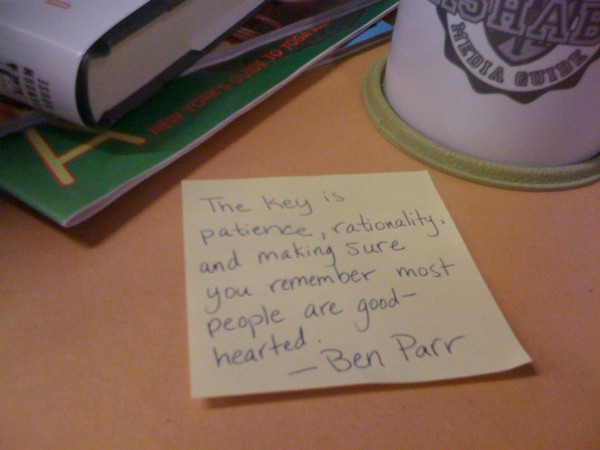 RANDOM
HOUSE
NEW YORK'S GUIDE TO YOGA
A
MASHAB
MEDIA GUIDE
The key is
patience, rationality,
and making sure
you remember most
people are good-
hearted.
— Ben Parr